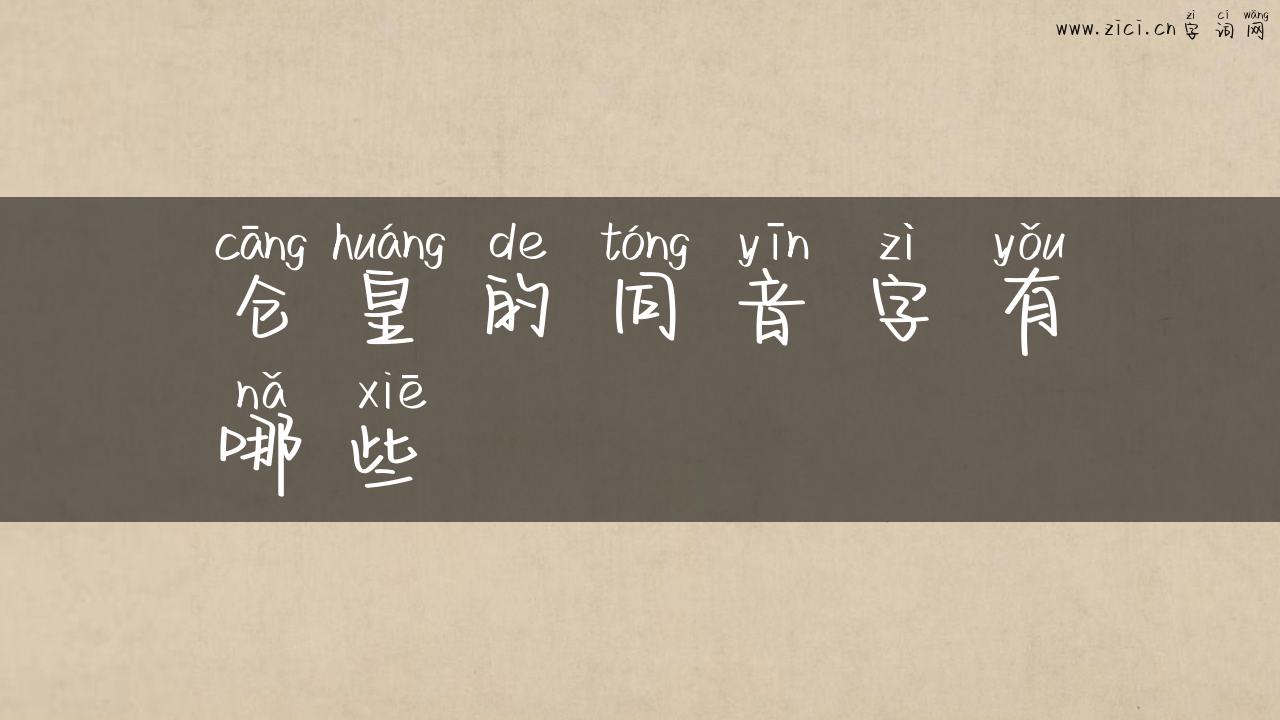 zì cí wǎng
www.zici.cn 字词网
cāng huáng de tóng yīn zì yǒu
仓皇的同音字有
nǎ xiē
哪些